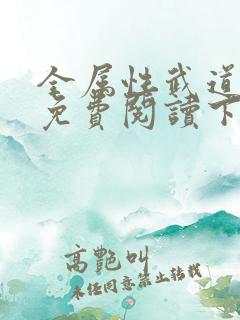 全属性武道
免費閱讀下
高艷叫
未经同意禁止转载